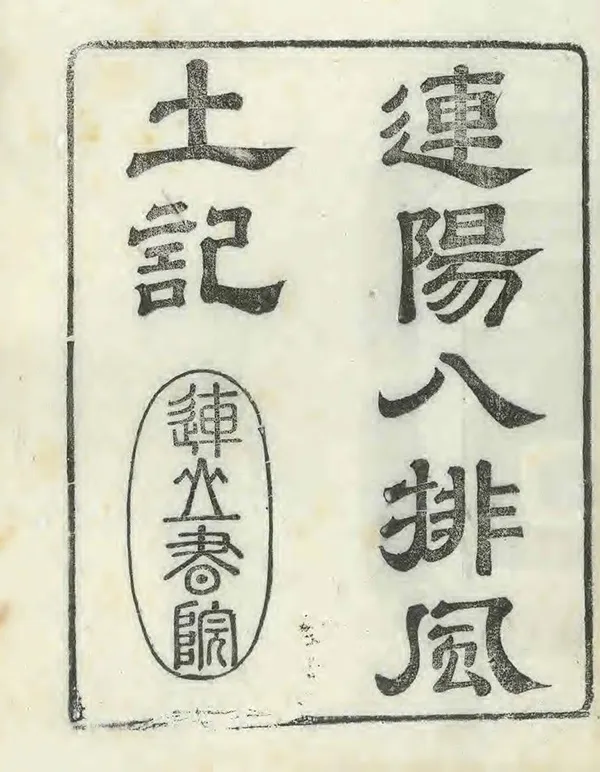 連陽八排風
土記
連山書院